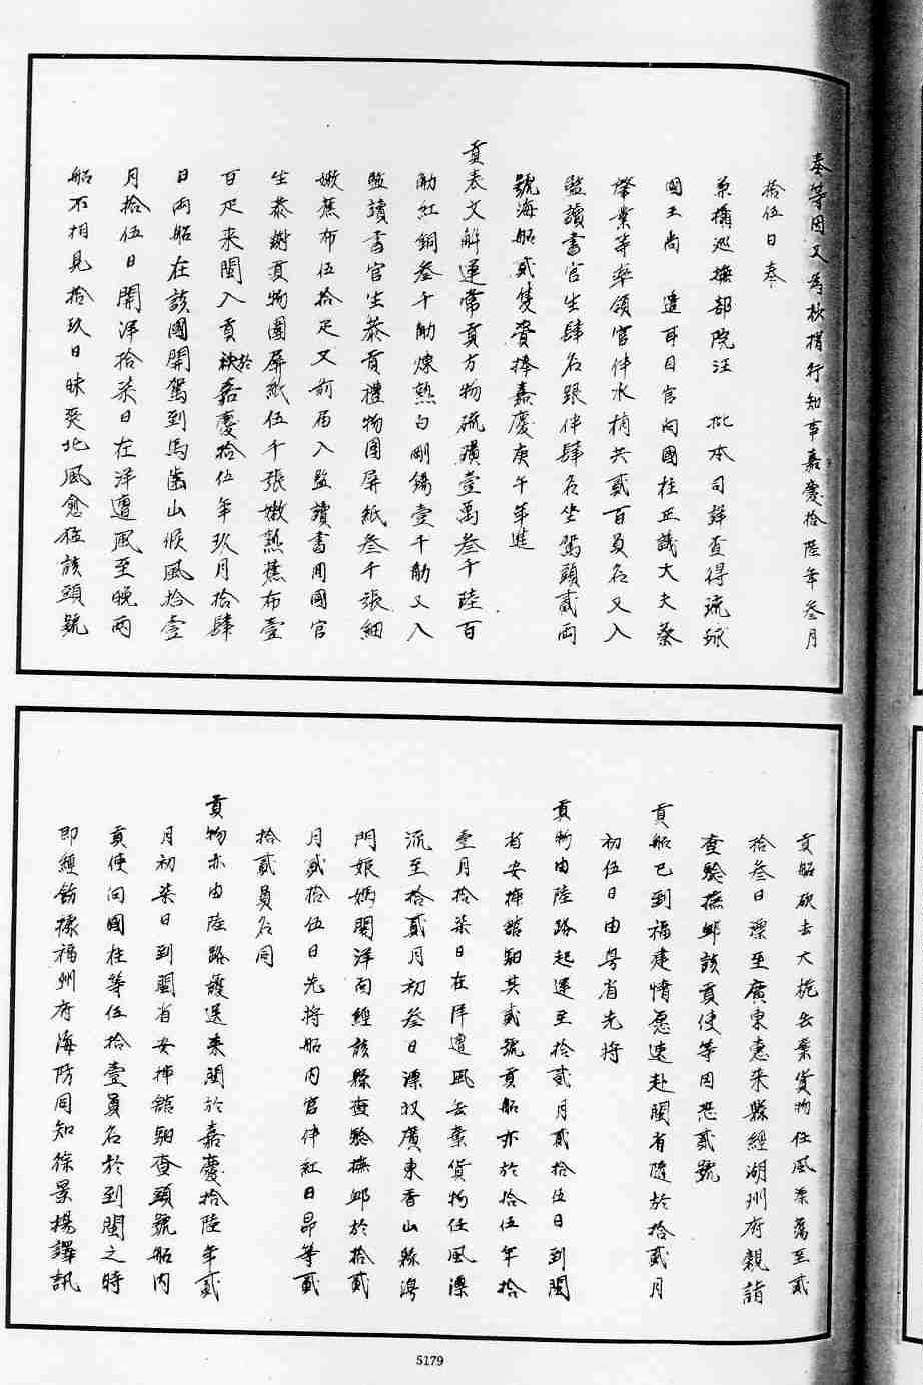 奉等因又為抄揭行知事嘉慶拾陸年叁月
拾伍日奉
兼攝巡撫部院汪 批本司詳查得琉球
國王尚 遣耳目官向國柱正議大夫蔡
肇業等率領官伴水梢共貳百員名又入
監讀書官生肆名跟伴肆名坐駕頭貳兩
號海船貳隻賫捧嘉慶庚午年進
貢表文解運常貢方物硫磺壹萬叁千陸百
觔紅銅叁千觔煉熟白剛錫壹千觔又入
監讀書官生恭貢禮物圍屏紙叁千張細
嫩蕉布伍拾疋又前屆入監讀書回國官
生恭謝貢物圍屏紙伍千張嫩熟蕉布壹
百疋來閩入貢於嘉慶拾伍年玖月拾肆
日兩船在該國開駕到馬齒山候風拾壹
月拾伍日開洋拾柒日在洋遭風至晚兩
船不相見拾玖日昧爽北風愈猛該頭號
貢船砍去大桅丟棄貨物任風漂蕩至貳
拾叁日漂至廣東惠來縣經湖州府親詣
查驗撫卹該貢使等因悉貳號
貢船已到福建情愿速赴閩省隨於拾貳月
初伍日由粵省先將
貢物由陸路起運至拾貳月貳拾伍日到閩
省安揷館驛其貳號貢船亦於拾伍年拾
壹月拾柒日在洋遭風丟棄貨物任風漂
流至拾貳月初叁日漂收廣東香山縣灣
門娘媽閣洋面經該縣查驗撫卹於拾貳
月貳拾伍日先將船內官伴紅日昂等貳
拾貳員名同
貢物亦由陸路護送來閩於嘉慶拾陸年貳
月初柒日到閩省安揷館驛查頭號船內
貢使向國柱等伍拾壹員名於到閩之時
即經飭據福州府海防同知徐景揚譯訊
5179